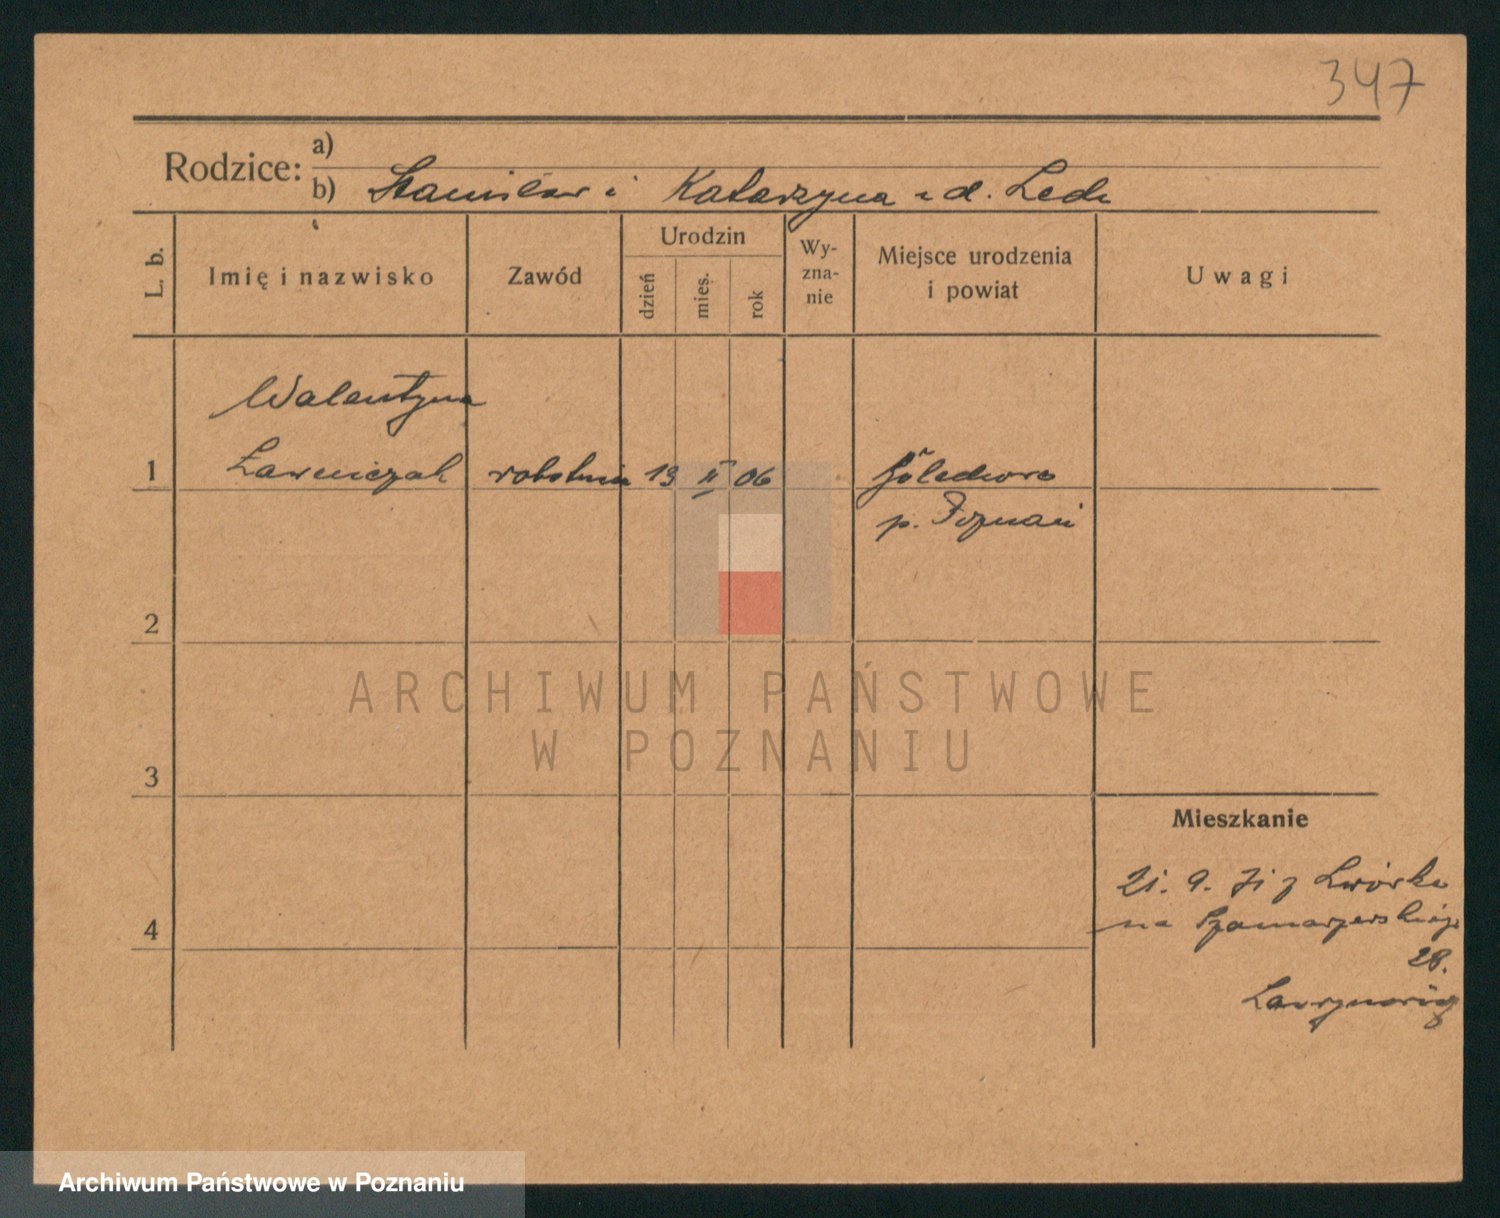 347
Rodzice: a)
b) Stanisław i Katarzyna z d. Leda
L. b.
Imię i nazwisko
Zawód
Urodzin
dzień
mies.
rok
Wy-
zna-
nie
Miejsce urodzenia
i powiat
Uwagi
Walentyna
1 Ławniczak robotnica 13 II 06
p. Poznań
2
3
4
Mieszkanie
21. 9. 31 z Lwówka
na Szamarzewskiego
28.
ARCHIWUM PAŃSTWOWE
W POZNANIU
Archiwum Państwowe w Poznaniu